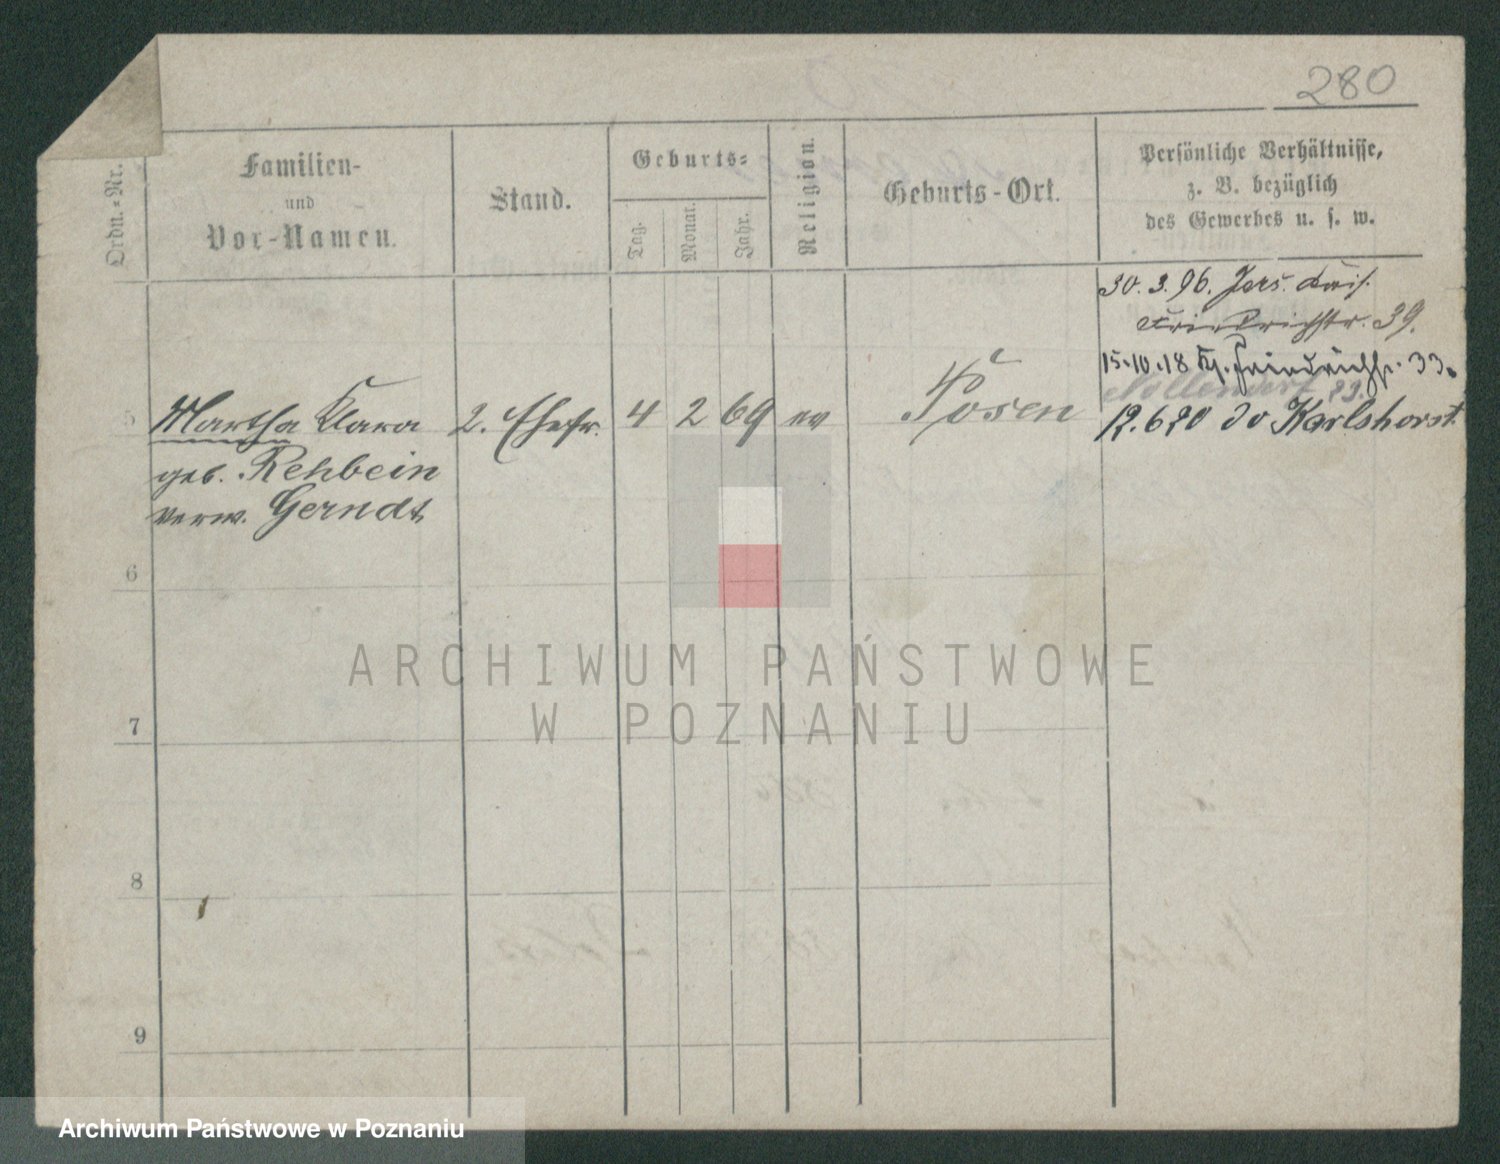 280
Ordn.-Nr.
Familien-
und
Vor-Namen.
Stand.
Geburts-
Tag.
Monat.
Jahr.
Religion.
Geburts-Ort.
Persönliche Verhältnisse,
z. B. bezüglich
des Gewerbes u. s. w.
30. 3. 96. Jers. Kais.
Friedrichstr. 39.
15.10.18 Friedrichstr. 33.
Nollendorf 23.
5 Martha Klara 2. Ehefr. 4 2 69 ev Posen 12.6 20 Karlshorst
geb. Rehbein
verw. Gerndt
6
7
8
9
ARCHIWUM PAŃSTWOWE
W POZNANIU
Archiwum Państwowe w Poznaniu